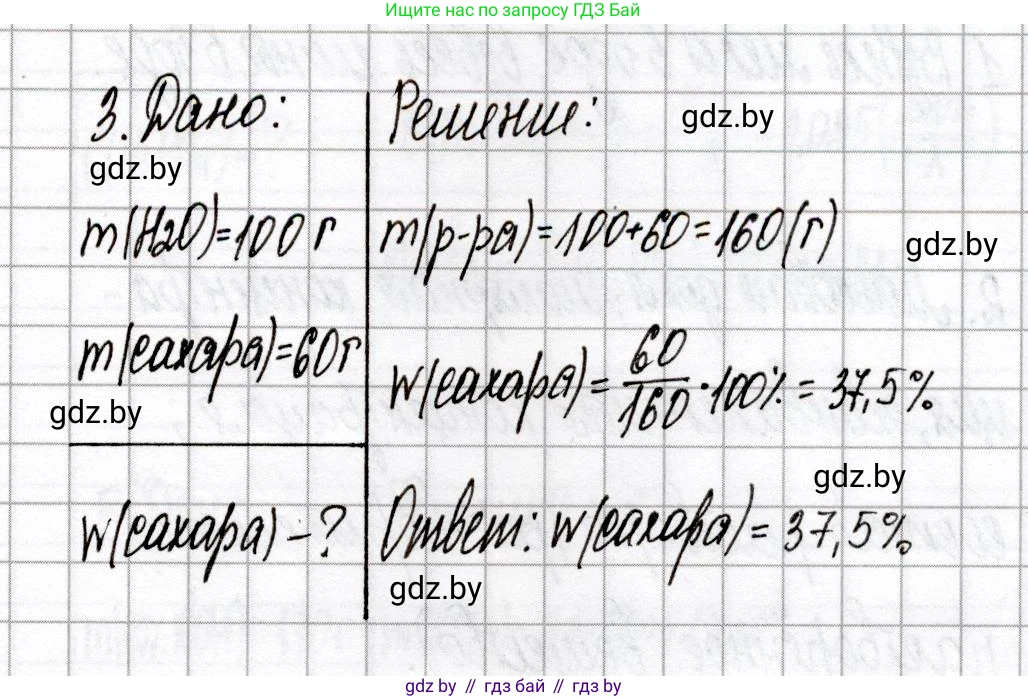 Ищите нас по запросу ГДЗ Бай
3. Дано:
Решение:
gdz.by
gdz.by
m(H2O)=100 г
m(р-ра)=100+60=160(г)
gdz.by
m(сахара)=60г
w(сахара) = 60/160 · 100% = 37,5%
gdz.by
gdz.by
w(сахара) - ?
Ответ: w(сахара) = 37,5%
gdz.by
gdz.by // гдз бай // gdz.by